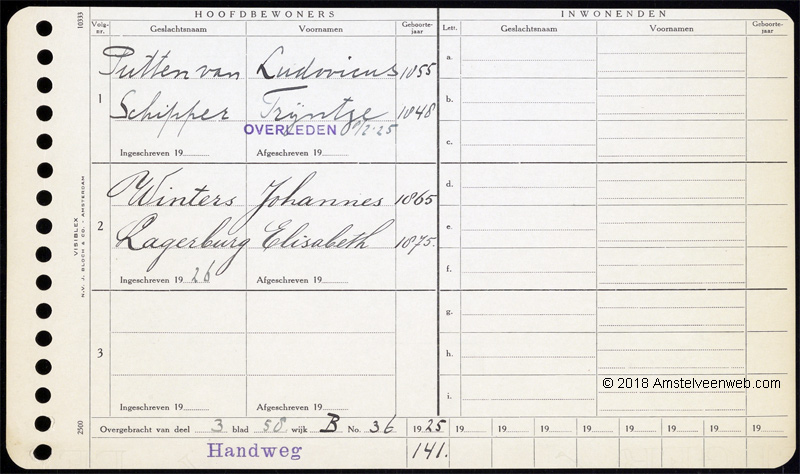 HOOFDBEWONERS INWONENDEN
Volg-nr. Geslachtsnaam Voornamen Geboorte-jaar Lett. Geslachtsnaam Voornamen Geboorte-jaar
10333
1
Putten van Ludovicus 1855
Schipper Trijntje 1848
OVERLEDEN /2-25
Ingeschreven 19 Afgeschreven 19
a.
b.
c.
2
Winters Johannes 1865
Lagerburg Elisabeth 1875.
Ingeschreven 19 26 Afgeschreven 19
d.
e.
f.
3
Ingeschreven 19 Afgeschreven 19
g.
h.
i.
VISIBLEX
N.V. J. BLOCH & CO. - AMSTERDAM
2500
© 2018 Amstelveenweb.com
Overgebracht van deel 3 blad 58 wijk B No. 36 1925 19 19 19 19 19 19 19 19
Handweg 141.